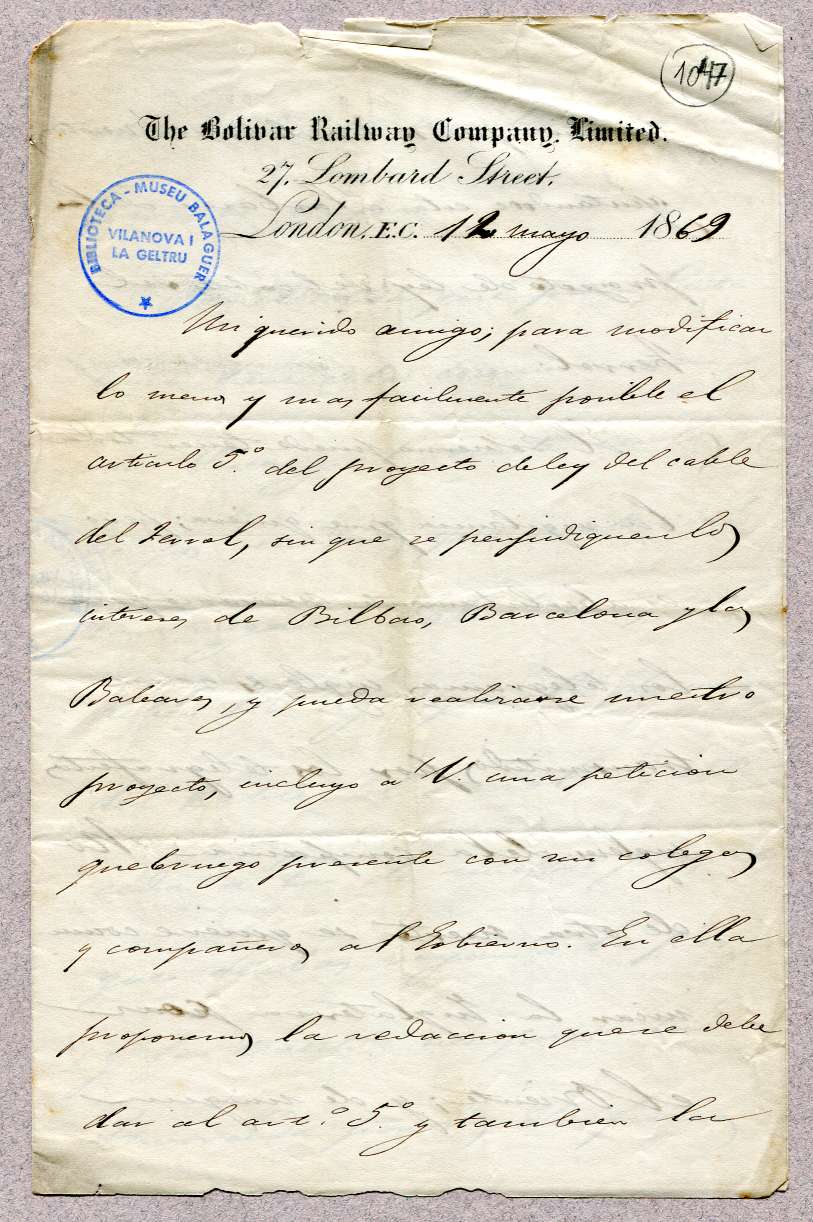 1047
The Bolivar Railway Company, Limited.
27, Lombard Street,
London, E.C. 12 mayo 1869
BIBLIOTECA - MUSEU BALAGUER
VILANOVA I
LA GELTRU
Mi querido amigo; para modificar
lo menos y mas facilmente posible el
articulo 5.º del proyecto de ley del cable
del Ferrol, sin que se perjudiquen los
intereses de Bilbao, Barcelona y las
Baleares, y pueda realizarse nuestro
proyecto, incluyo a' V. una peticion
que le ruego presente con sus colegas
y compañeros al Gobierno. En ella
proponemos la redaccion que se debe
dar al art.º 5.º y tambien la